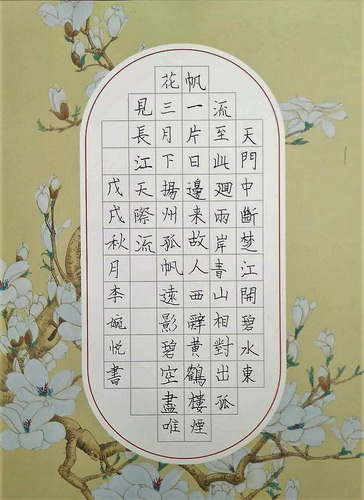 天門中斷楚江開碧水東
流至此廻兩岸青山相對出孤
帆一片日邊来故人西辭黄鶴樓煙
花三月下揚州孤帆遠影碧空盡唯
見長江天際流
戊戌秋月李婉悦書